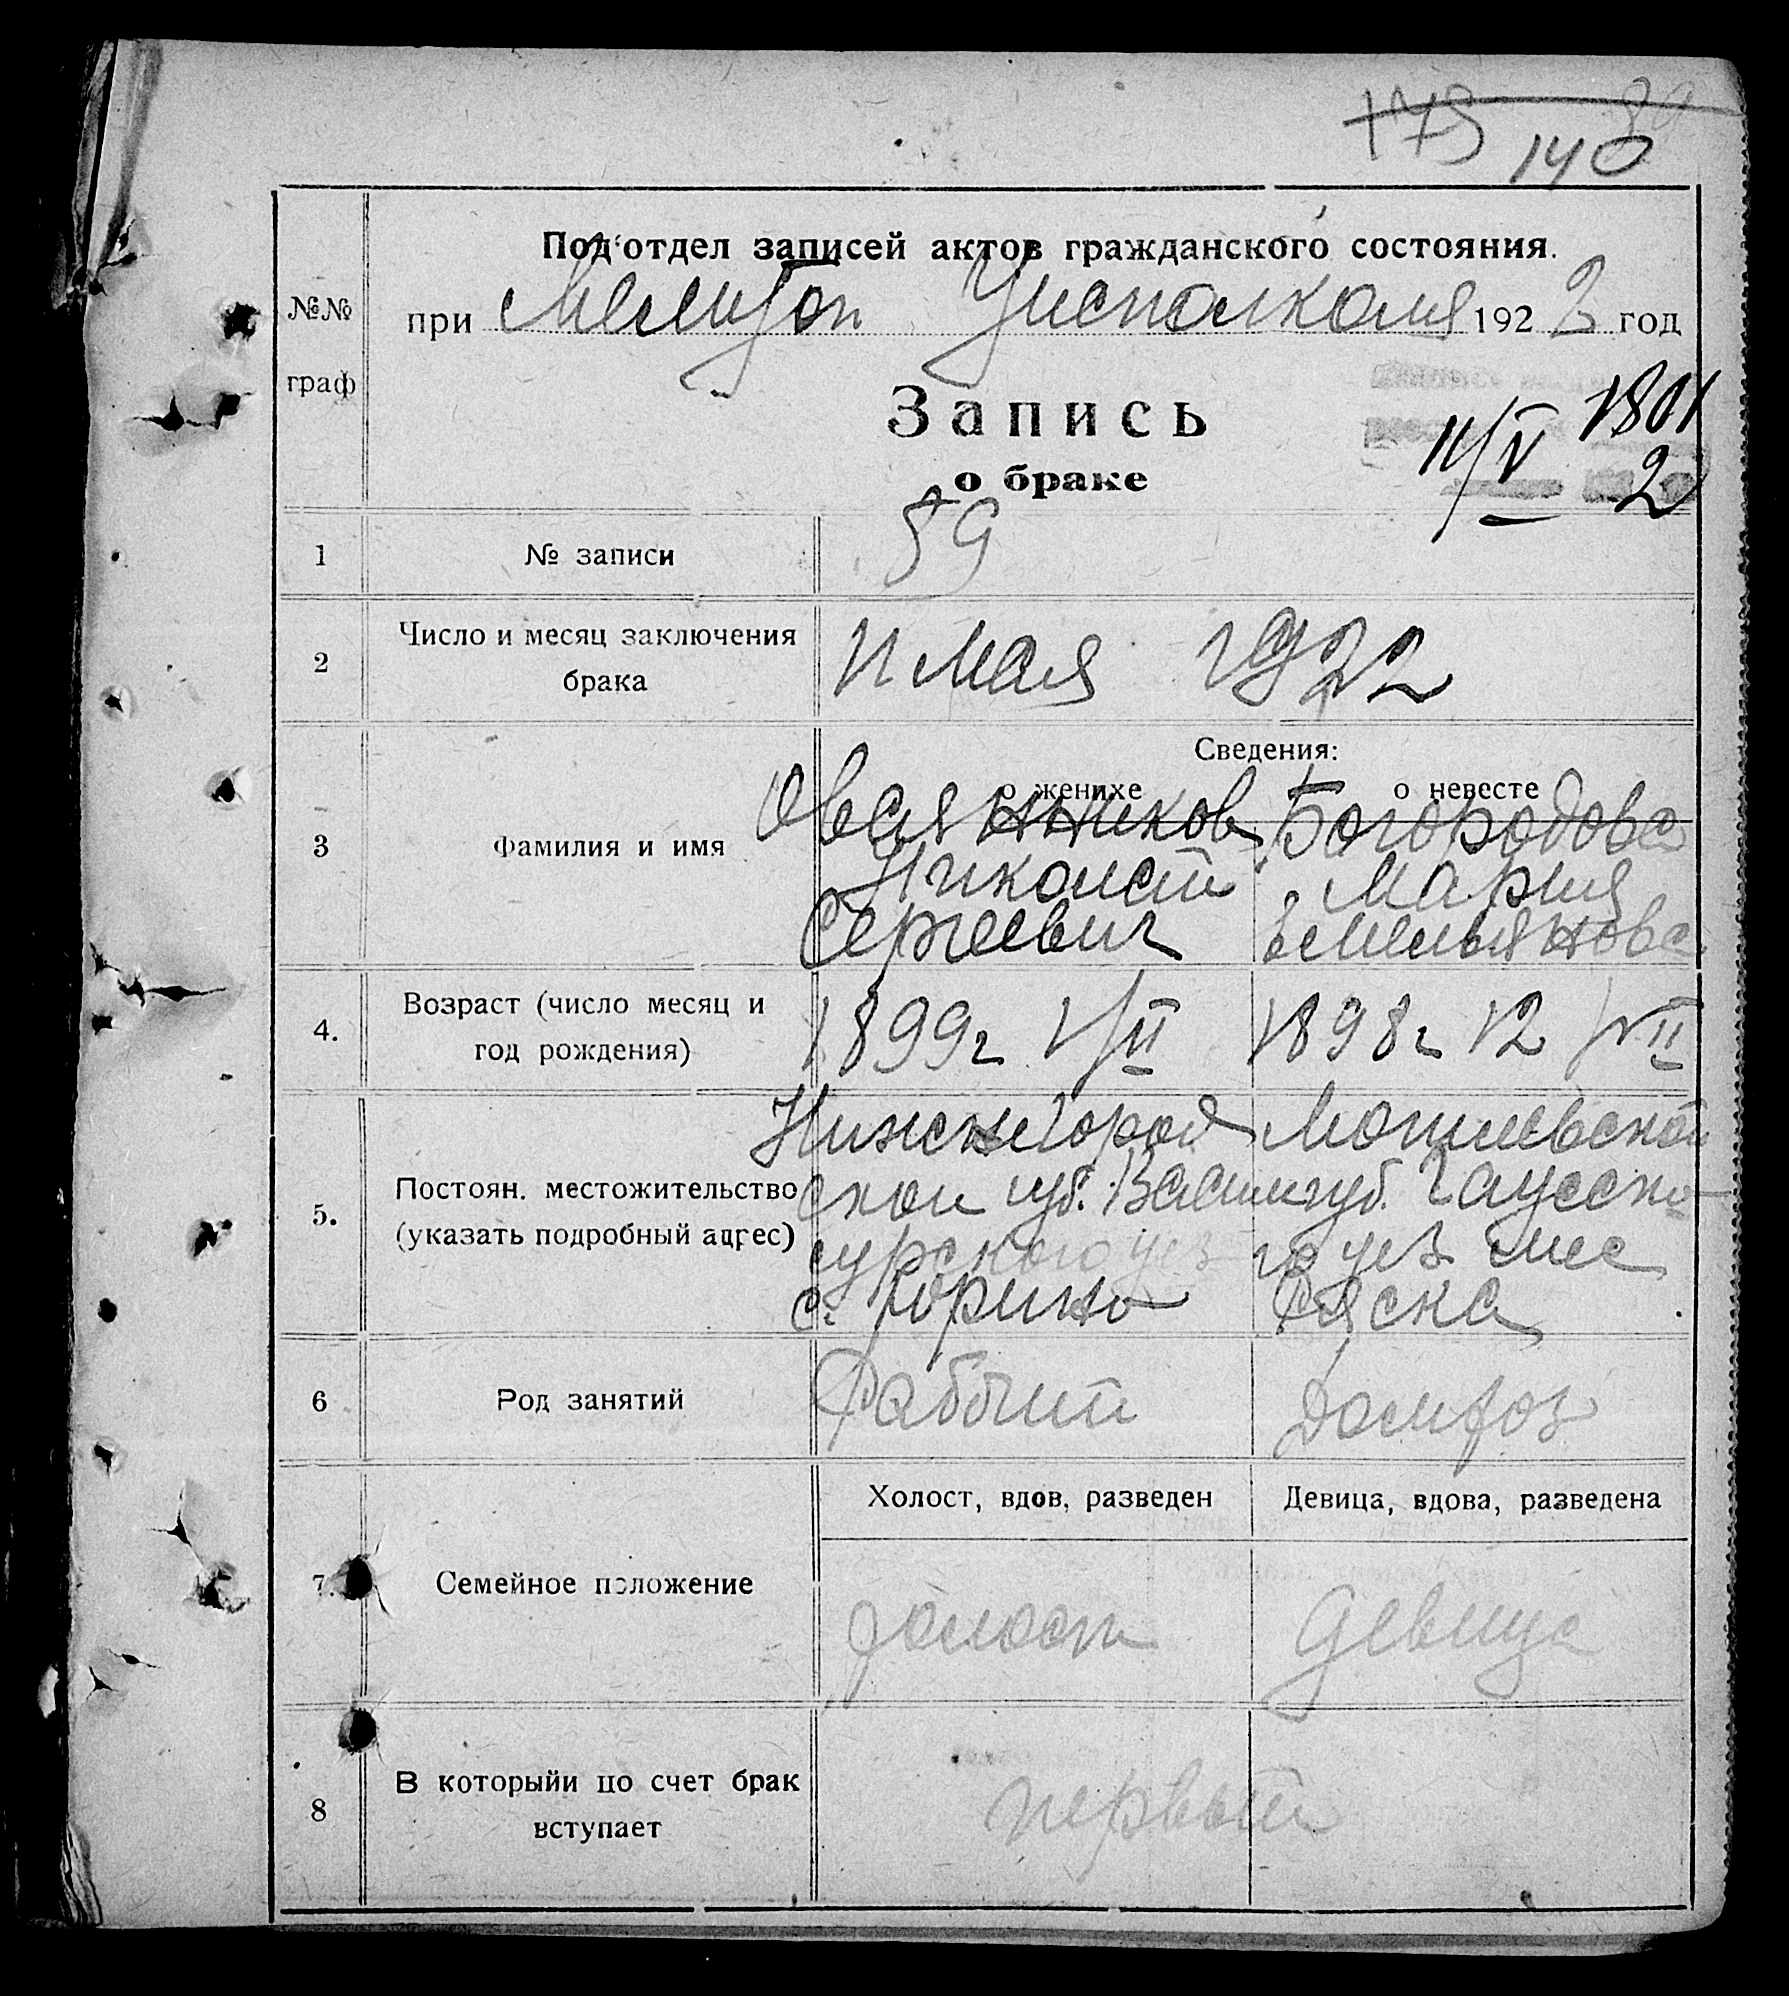 175
140
Под'отдел записей актов гражданского состояния.
№№ граф
при Мелитоп Уисполкомя 1922 год
Запись
о браке
11/V 1801
2
1 № записи 59
2 Число и месяц заключения брака 11 мая 1922
Сведения:
о женихе о невесте
3 Фамилия и имя
Овсянников Богородова
Николай Мария
Сергеевич Емельянова
4. Возраст (число месяц и год рождения) 1899г 1/II 1898г 12/VII
5. Постоян. местожительство (указать подробный адрес)
Нижнегород Могилевской
ской губ. Васил губ. Чаусско
сурского уез го уез мес
с. Юрино Ряска
6 Род занятий Рабочий Домхоз
Холост, вдов, разведен Девица, вдова, разведена
7. Семейное положение холост девица
8 В которыйи по счет брак вступает первый